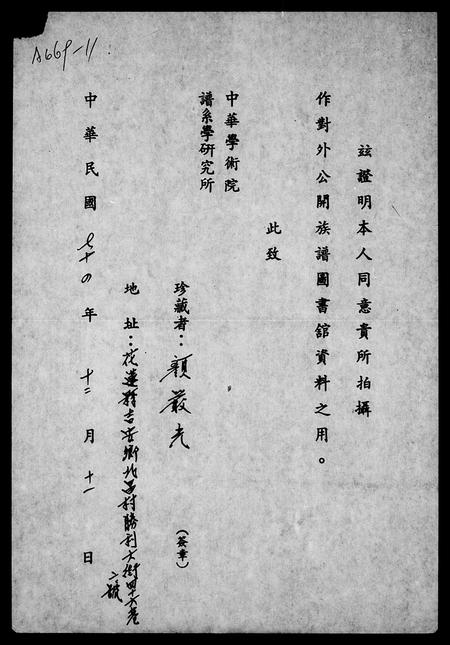 A669-11
茲證明本人同意貴所拍攝
作對外公開族譜圖書館資料之用。
此致
中華學術院
譜系學研究所
珍藏者：顏嚴光
(簽章)
地址：花蓮縣吉安鄉北昌村勝利大街四十六巷
二號
中華民國七十四年十二月十一日